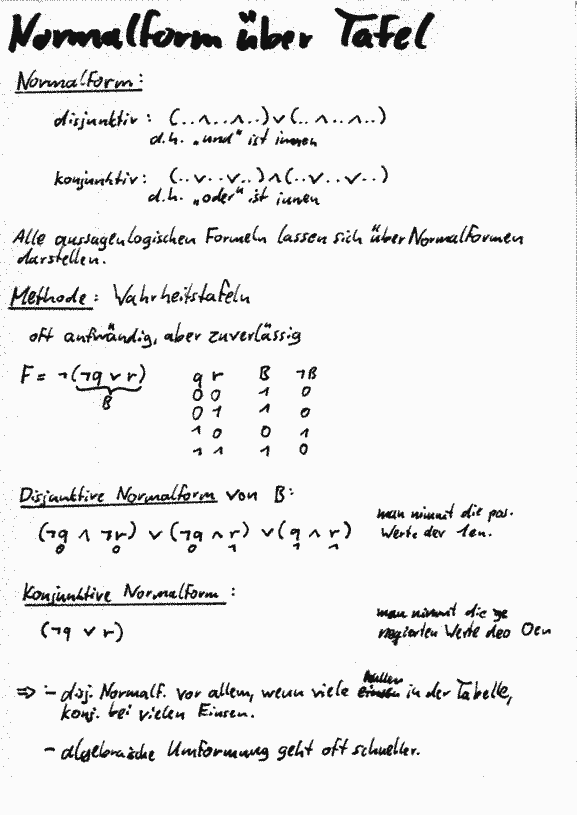 Normalform über Tafel
Normalform:
disjunktiv: (..∧..∧..)∨(..∧..∧..)
d.h. „und“ ist innen
konjunktiv: (..∨..∨..)∧(..∨..∨..)
d.h. „oder“ ist innen
Alle aussagenlogischen Formeln lassen sich über Normalformen
darstellen.
Methode: Wahrheitstafeln
oft aufwändig, aber zuverlässig
F = ¬(¬q ∨ r)
B
q r B ¬B
0 0 1 0
0 1 1 0
1 0 0 1
1 1 1 0
Disjunktive Normalform von B:
man nimmt die pos.
Werte der 1en.
(¬q ∧ ¬r) ∨ (¬q ∧ r) ∨ (q ∧ r)
0 0 0 1 1 1
Konjunktive Normalform:
man nimmt die ne
negierten Werte der 0en
(¬q ∨ r)
⇒ - disj. Normalf. vor allem, wenn viele Nullen in der Tabelle,
konj. bei vielen Einsen.
- algebraische Umformung geht oft schneller.